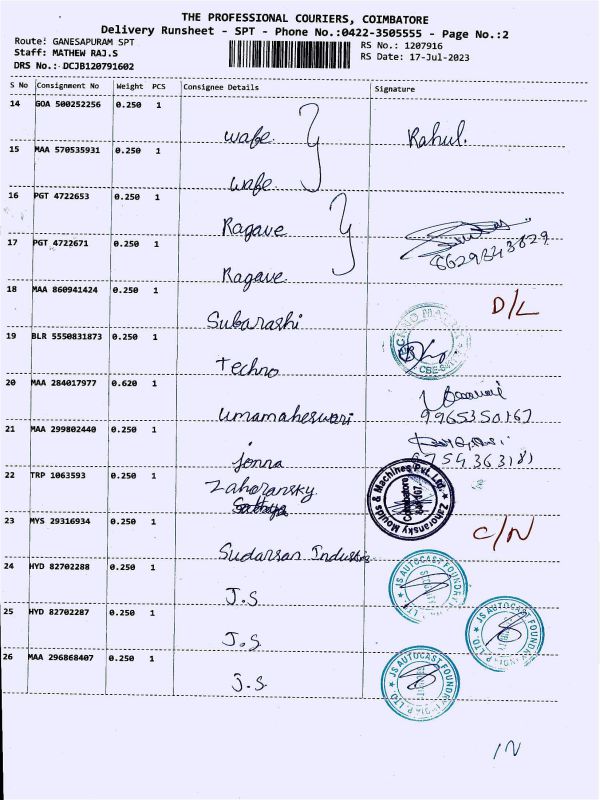 THE PROFESSIONAL COURIERS, COIMBATORE
Delivery Runsheet - SPT - Phone No.:0422-3505555 - Page No.:2
Route: GANESAPURAM SPT
Staff: MATHEW RAJ.S
DRS No.: DCJB120791602
RS No.: 1207916
RS Date: 17-Jul-2023
S No Consignment No Weight PCS Consignee Details Signature
14 GOA 500252256 0.250 1
wafe Rahul.
15 MAA 570535931 0.250 1
wafe
16 PGT 4722653 0.250 1
Ragave
17 PGT 4722671 0.250 1
8629843829
Ragave
18 MAA 860941424 0.250 1
D/L
Subarashi
19 BLR 5550831873 0.250 1
Techno
20 MAA 284017977 0.620 1
Umamaheswari 9965350167
21 MAA 299802440 0.250 1
Jenna 9754363181
22 TRP 1063593 0.250 1
Zahoransky
Zahoransky Moulds & Machines Pvt. Ltd.
Coimbatore
23 MYS 29316934 0.250 1
C/N
Sudarsan Industries
24 HYD 82702288 0.250 1
J.S
JS AUTOCAST FOUNDRY
25 HYD 82702287 0.250 1
J.S
JS AUTOCAST FOUNDRY INDIA P. LTD
26 MAA 296868407 0.250 1
J.S
JS AUTOCAST FOUNDRY INDIA P. LTD
IN